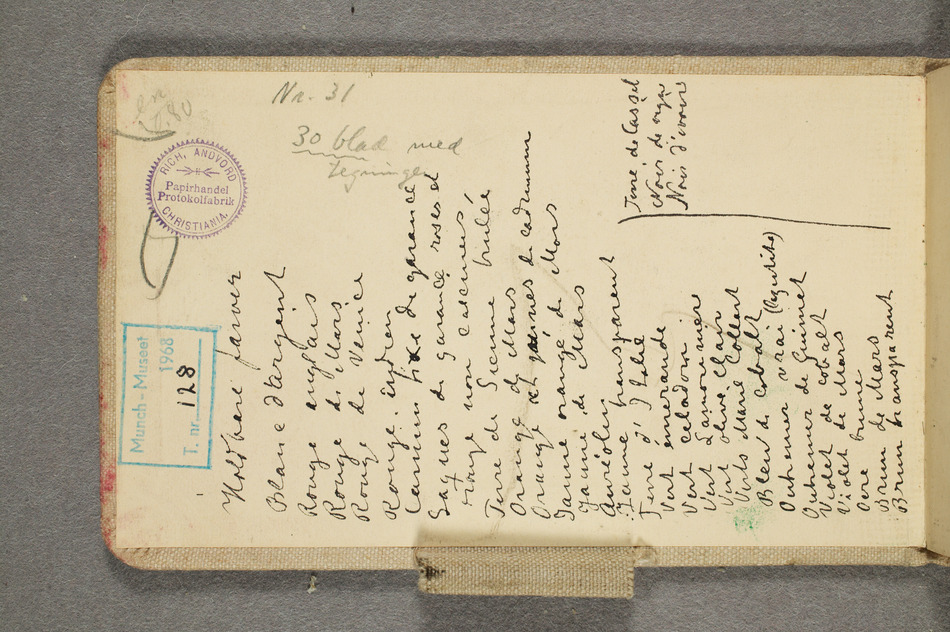 Nr. 31
30 blad med
tegninger
RICH. ANDVORD
Papirhandel
Protokolfabrik
CHRISTIANIA
Munch-Museet
1968
T. nr. 128
Holdbare farver
Blanc d'argent
Rouge anglais
Rouge de Mars
Rouge de Venice
Rouge indien
Carmin fixe de garance
Laques de garance roses et
rouge non calcinés
Terre de Sienne brulée
Orange de Mars
Orange et jaunes de cadmium
Jaune orangé de Mars
Jaune de Mars
Auréolin
Jaune transparent
Terre d'Italie
Vert émeraude
Vert celadon
Vert
Vert olive clair
Verts Marie Collect
Bleu de cobalt
Outremer vrai (lazulite)
Outremer de Guimet
Violet de cobalt
Violet de Mars
Ocre brune
Brun de Mars
Brun transparent
Terre de Cassel
Noir de vigne
Noir d'ivoire